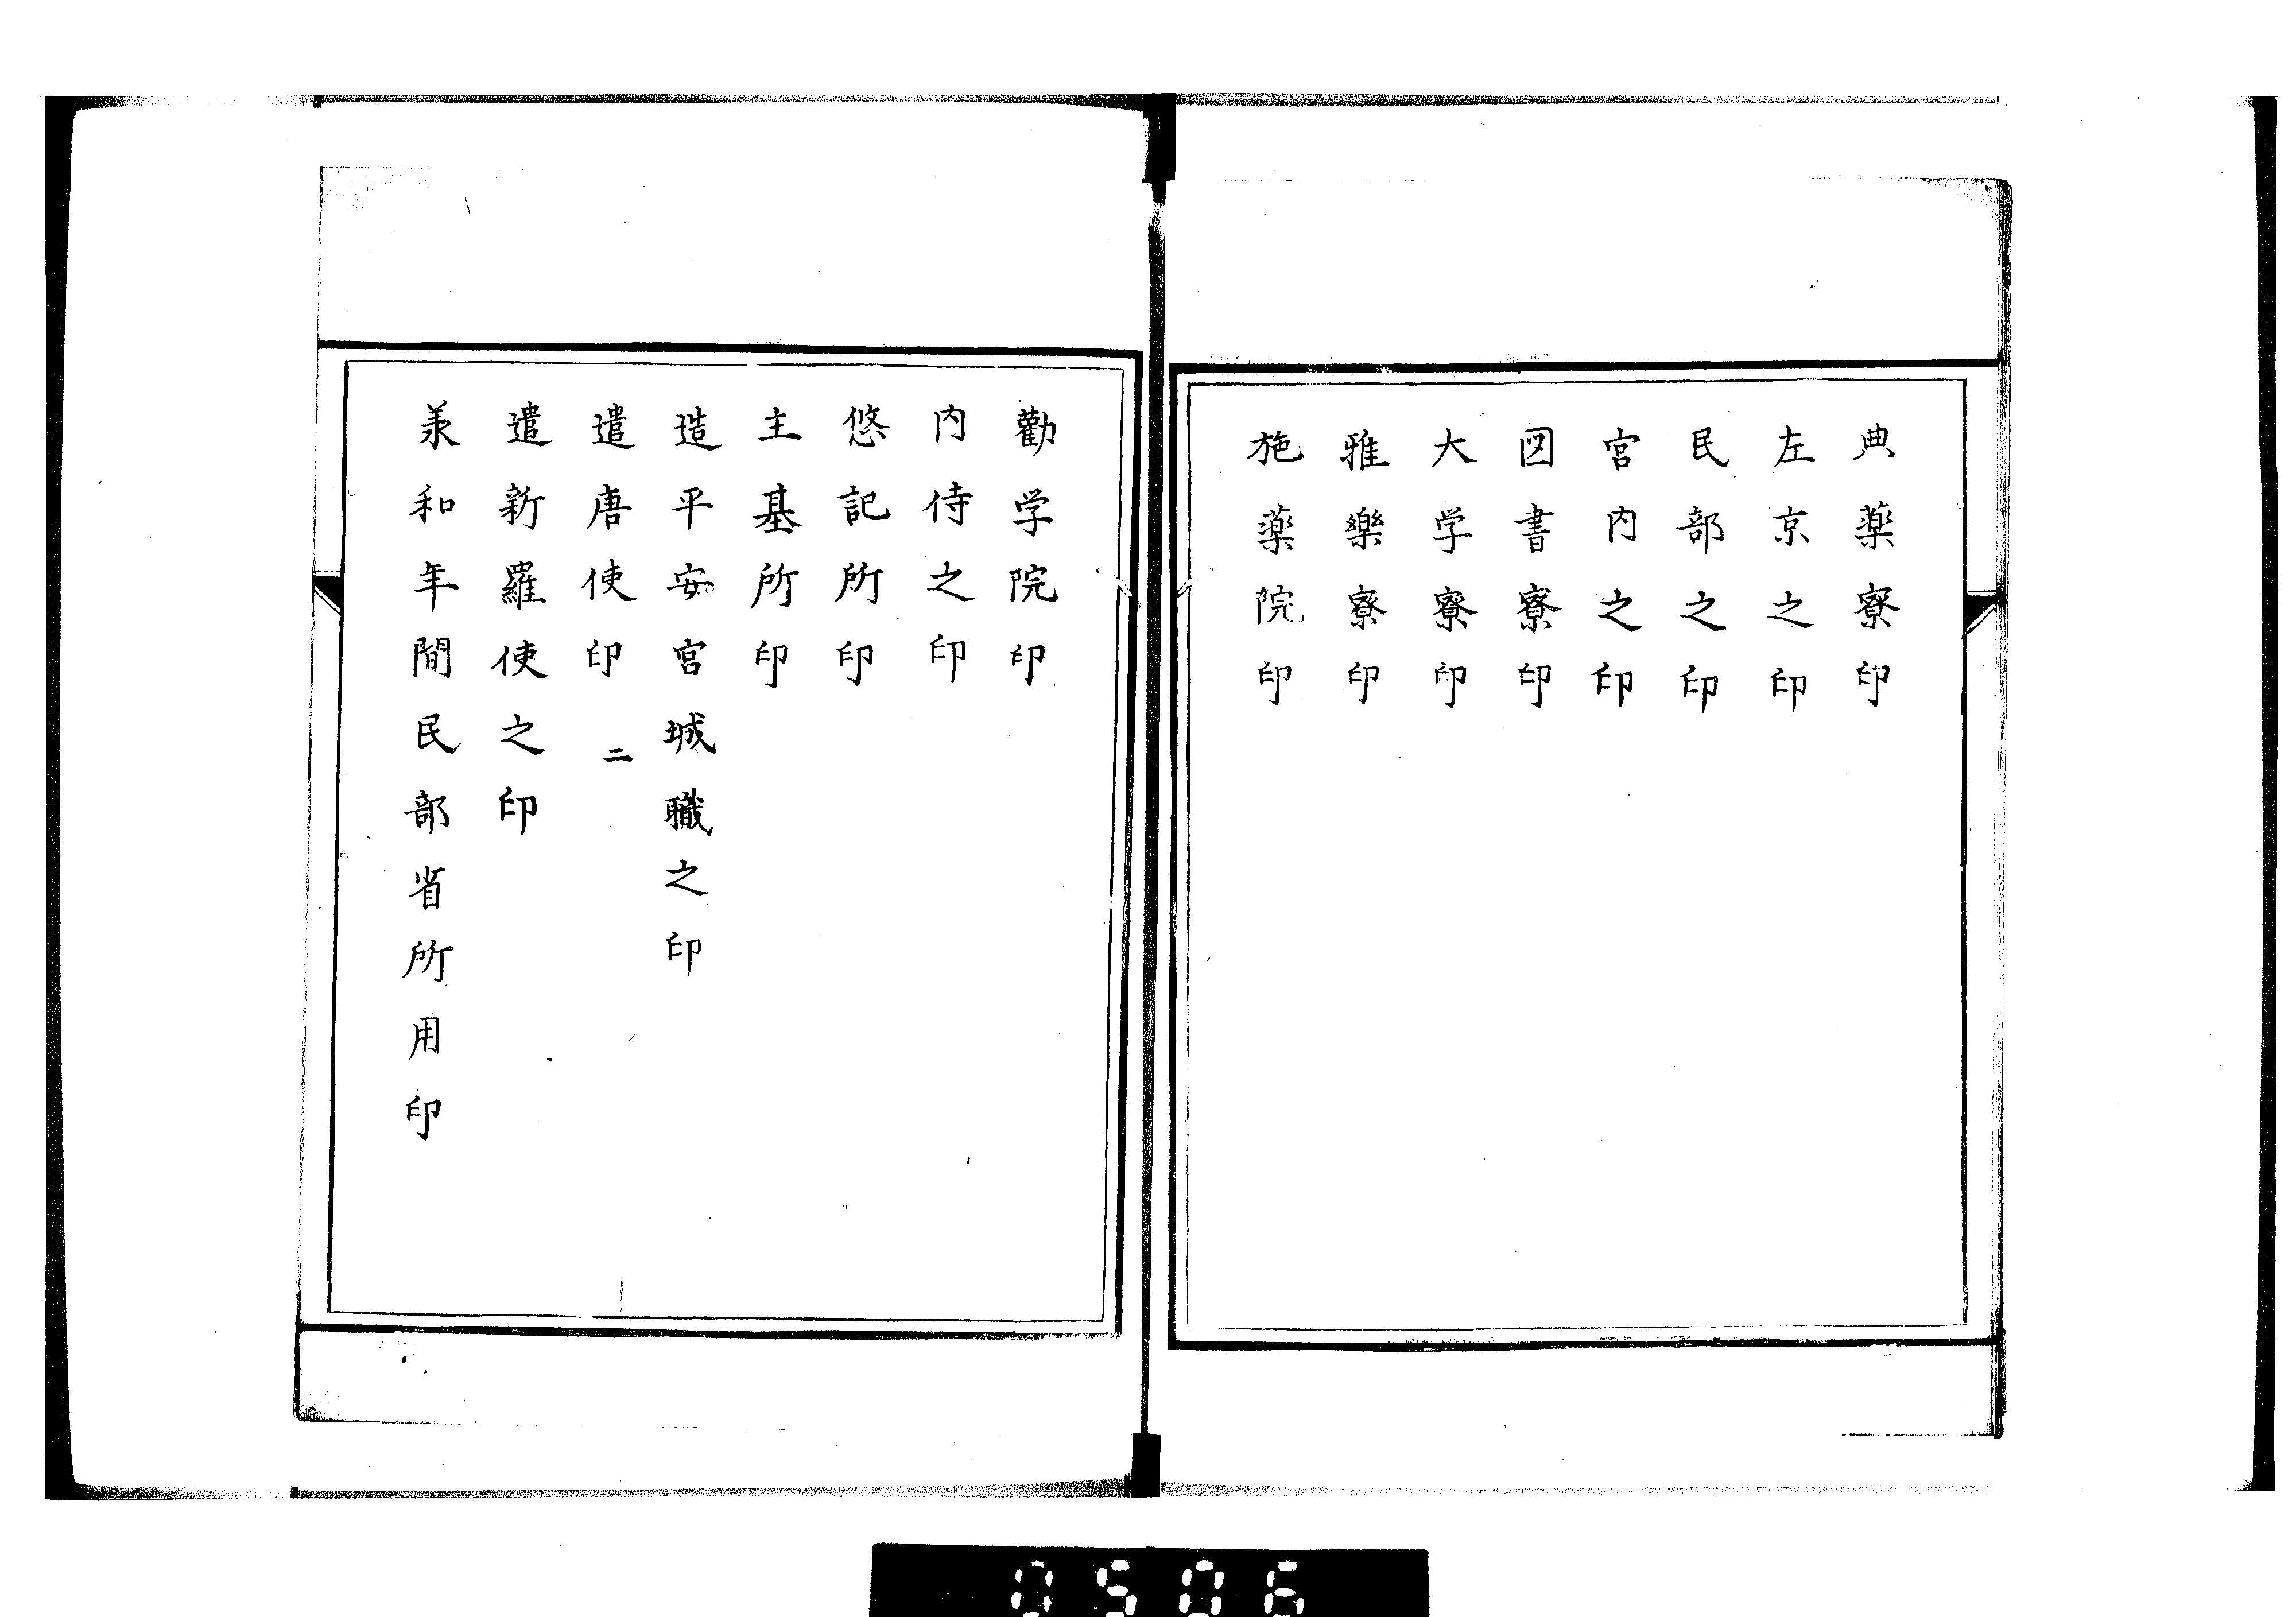 典薬寮印
左京之印
民部之印
宮内之印
図書寮印
大学寮印
雅樂寮印
施薬院印
勸学院印
内侍之印
悠記所印
主基所印
造平安宮城職之印
遣唐使印 二
遣新羅使之印
承和年間民部省所用印
0506